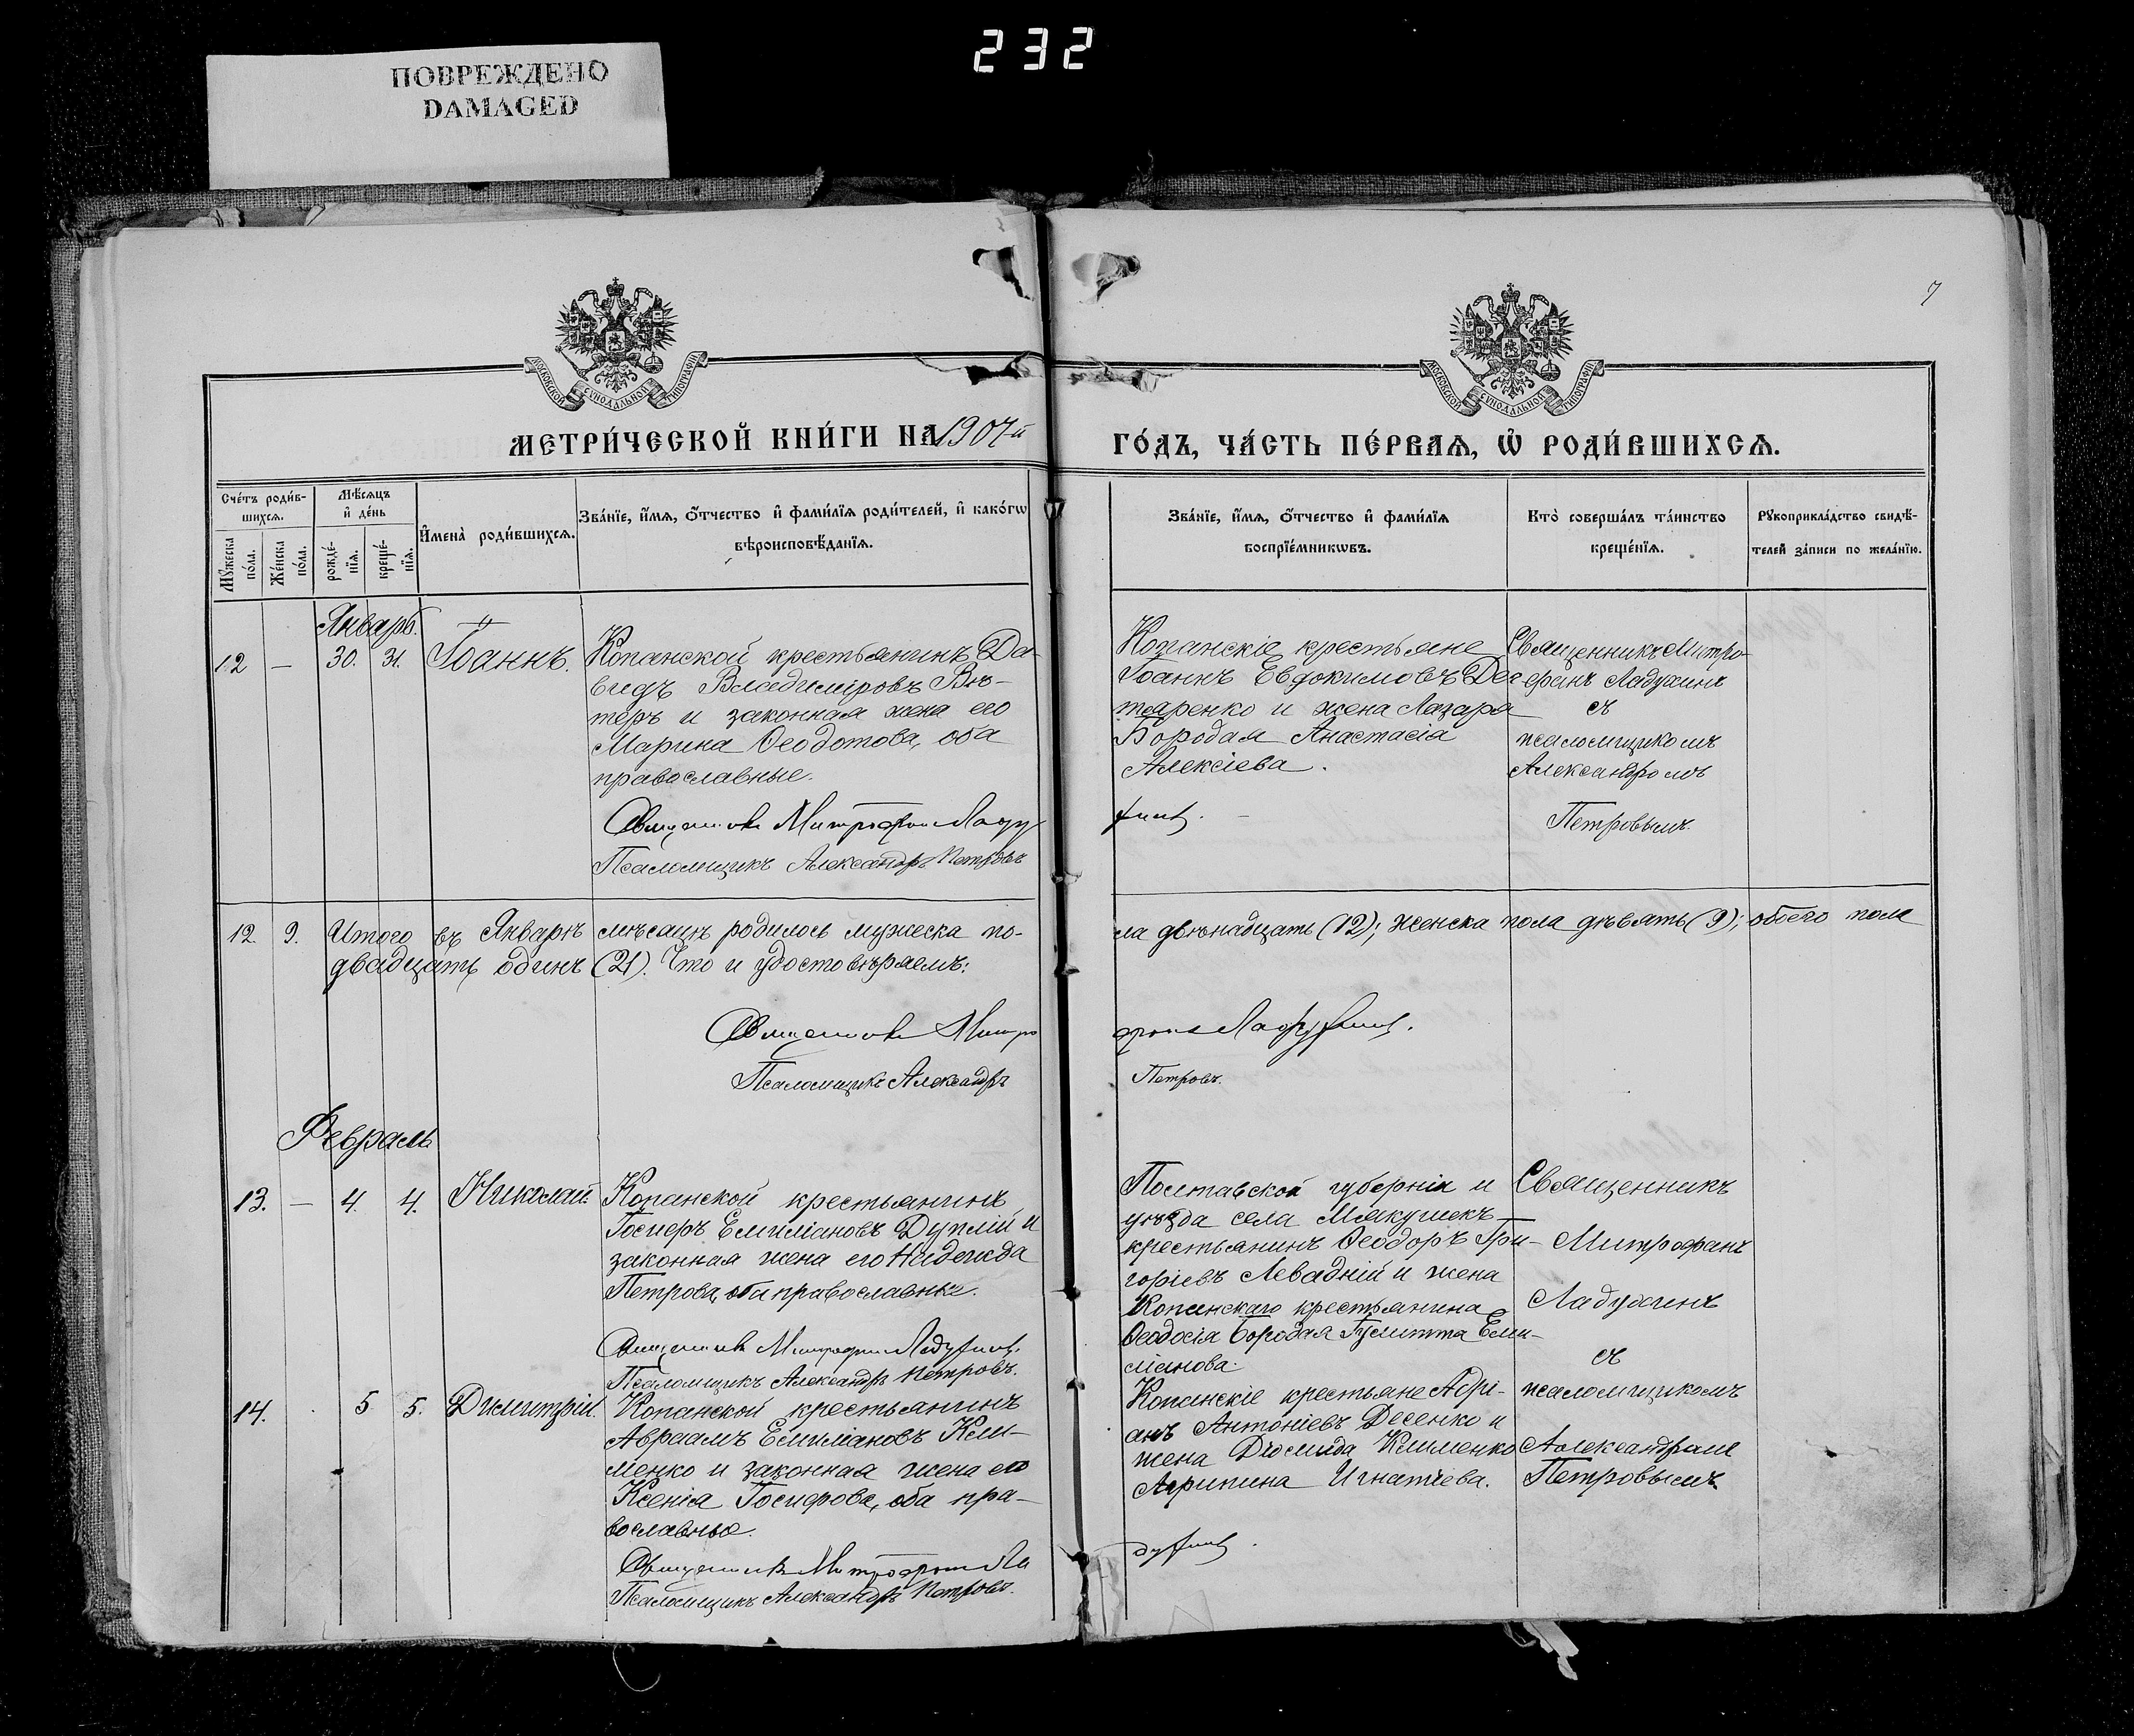 232
ПОВРЕЖДЕНО
DAMAGED
7
МОСКОВСКОЙ СѴНОДАЛЬНОЙ ТИПОГРАФІИ
МОСКОВСКОЙ СѴНОДАЛЬНОЙ ТИПОГРАФІИ
МЕТРИ́ЧЕСКОЙ КНИ́ГИ НА 1907-й
ГО́ДЪ, ЧА́СТЬ ПЕ́РВАѦ, Ѡ҆ РОДИ́ВШИХСѦ.
Сче́тъ роди́в-
шихсѧ.
Мѣ́сѧцъ
и҆ де́нь
Мꙋ́жеска
по́ла.
Же́нска
по́ла.
рожде́-
нїѧ.
креще́-
нїѧ.
И҆мена̀ роди́вшихсѧ.
Зва́нїе, и҆́мѧ, о҆́тчество и҆ фами́лїѧ роди́телей, и҆ како́гѡ
вѣроисповѣ́данїѧ.
Зва́нїе, и҆́мѧ, о҆́тчество и҆ фами́лїѧ
воспрїе́мникѡвъ.
Кто̀ соверша́лъ та́инство
креще́нїѧ.
Рꙋкоприкла́дство свидѣ́-
телей за́писи по жела́нїю.
Январь.
12 — 30. 31. Іоаннъ.
Копанской крестьянинъ Да-
видъ Владиміровъ Вѣ-
теръ и законная жена его
Марина Ѳеодотова, оба
православные.
Священникъ Митрофанъ Ладу
Псаломщикъ Александръ Петровъ
Копанскіе крестьяне
Іоаннъ Евдокимовъ Дег
тяренко и жена Лазаря
Бородая Анастасія
Алексіева.
хинъ.
Священникъ Митро-
фанъ Ладухинъ
съ
псаломщикомъ
Александромъ
Петровымъ.
12. 9. Итого въ Январѣ мѣсяцѣ родилось мужеска по-
ла двѣнадцать (12); женска пола девять (9); обоего пола
двадцать одинъ (21). Что и удостовѣряемъ:
Священникъ Митро
фанъ Ладухинъ.
Псаломщикъ Александръ
Петровъ.
Февраль
13. — 4. 4. Николай
Копанской крестьянинъ
Іосифъ Емиліановъ Дуплій и
законная жена его Надежда
Петрова, оба православные.
Священникъ Митрофанъ Ладухинъ.
Псаломщикъ Александръ Петровъ.
Полтавской губерніи и
уѣзда села Мякушекъ
крестьянинъ Ѳеодоръ Гри-
горіевъ Левадній и жена
Копанскаго крестьянина
Ѳеодосія Бородая Іулитта Еми-
ліанова.
Священникъ
Митрофанъ
Ладухинъ
съ
псаломщикомъ
Александромъ
Петровымъ
14. 5 5. Димитрій.
Копанской крестьянинъ
Авраамъ Емиліановъ Кли-
менко и законная жена его
Ксенія Іосифова, оба пра-
вославные.
Священникъ Митрофанъ Ла
Псаломщикъ Александръ Петровъ.
Копанскіе крестьяне Адрі-
анъ Антоніевъ Десенко и
жена Діомида Клименко
Агрипина Игнатіева.
духинъ.